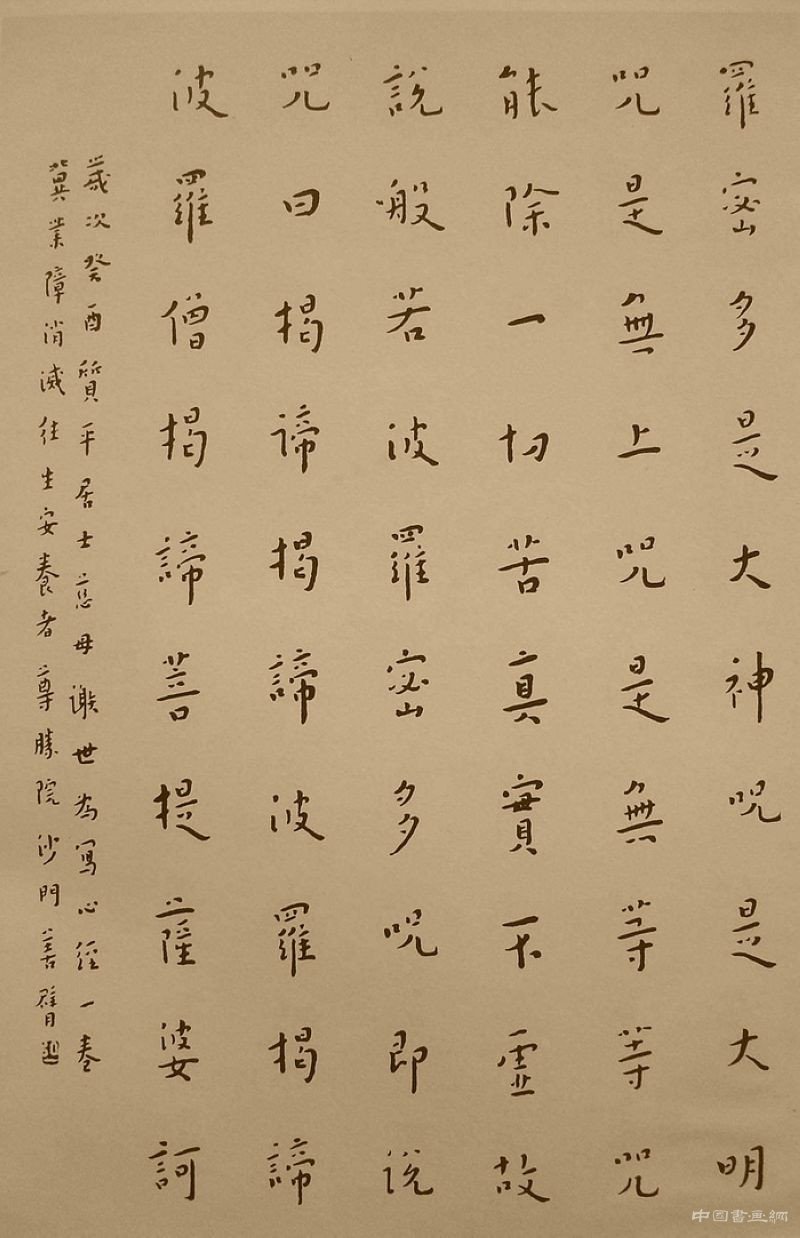 羅密多是大神呪是大明
呪是無上呪是無等等呪
能除一切苦真實不虛故
說般若波羅密多呪即说
呪曰揭諦揭諦波羅揭諦
波羅僧揭諦菩提薩婆訶
歲次癸酉質平居士慈母謝世為寫心經一卷
冀業障消滅往生安養者尊勝院沙門善臂
中国書画網